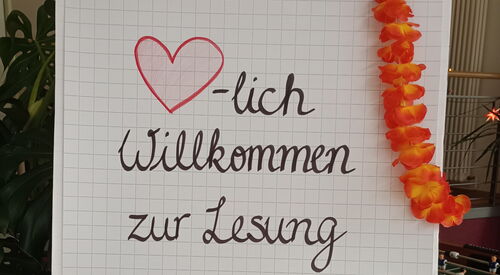 -lich
Willkommen
zur Lesung